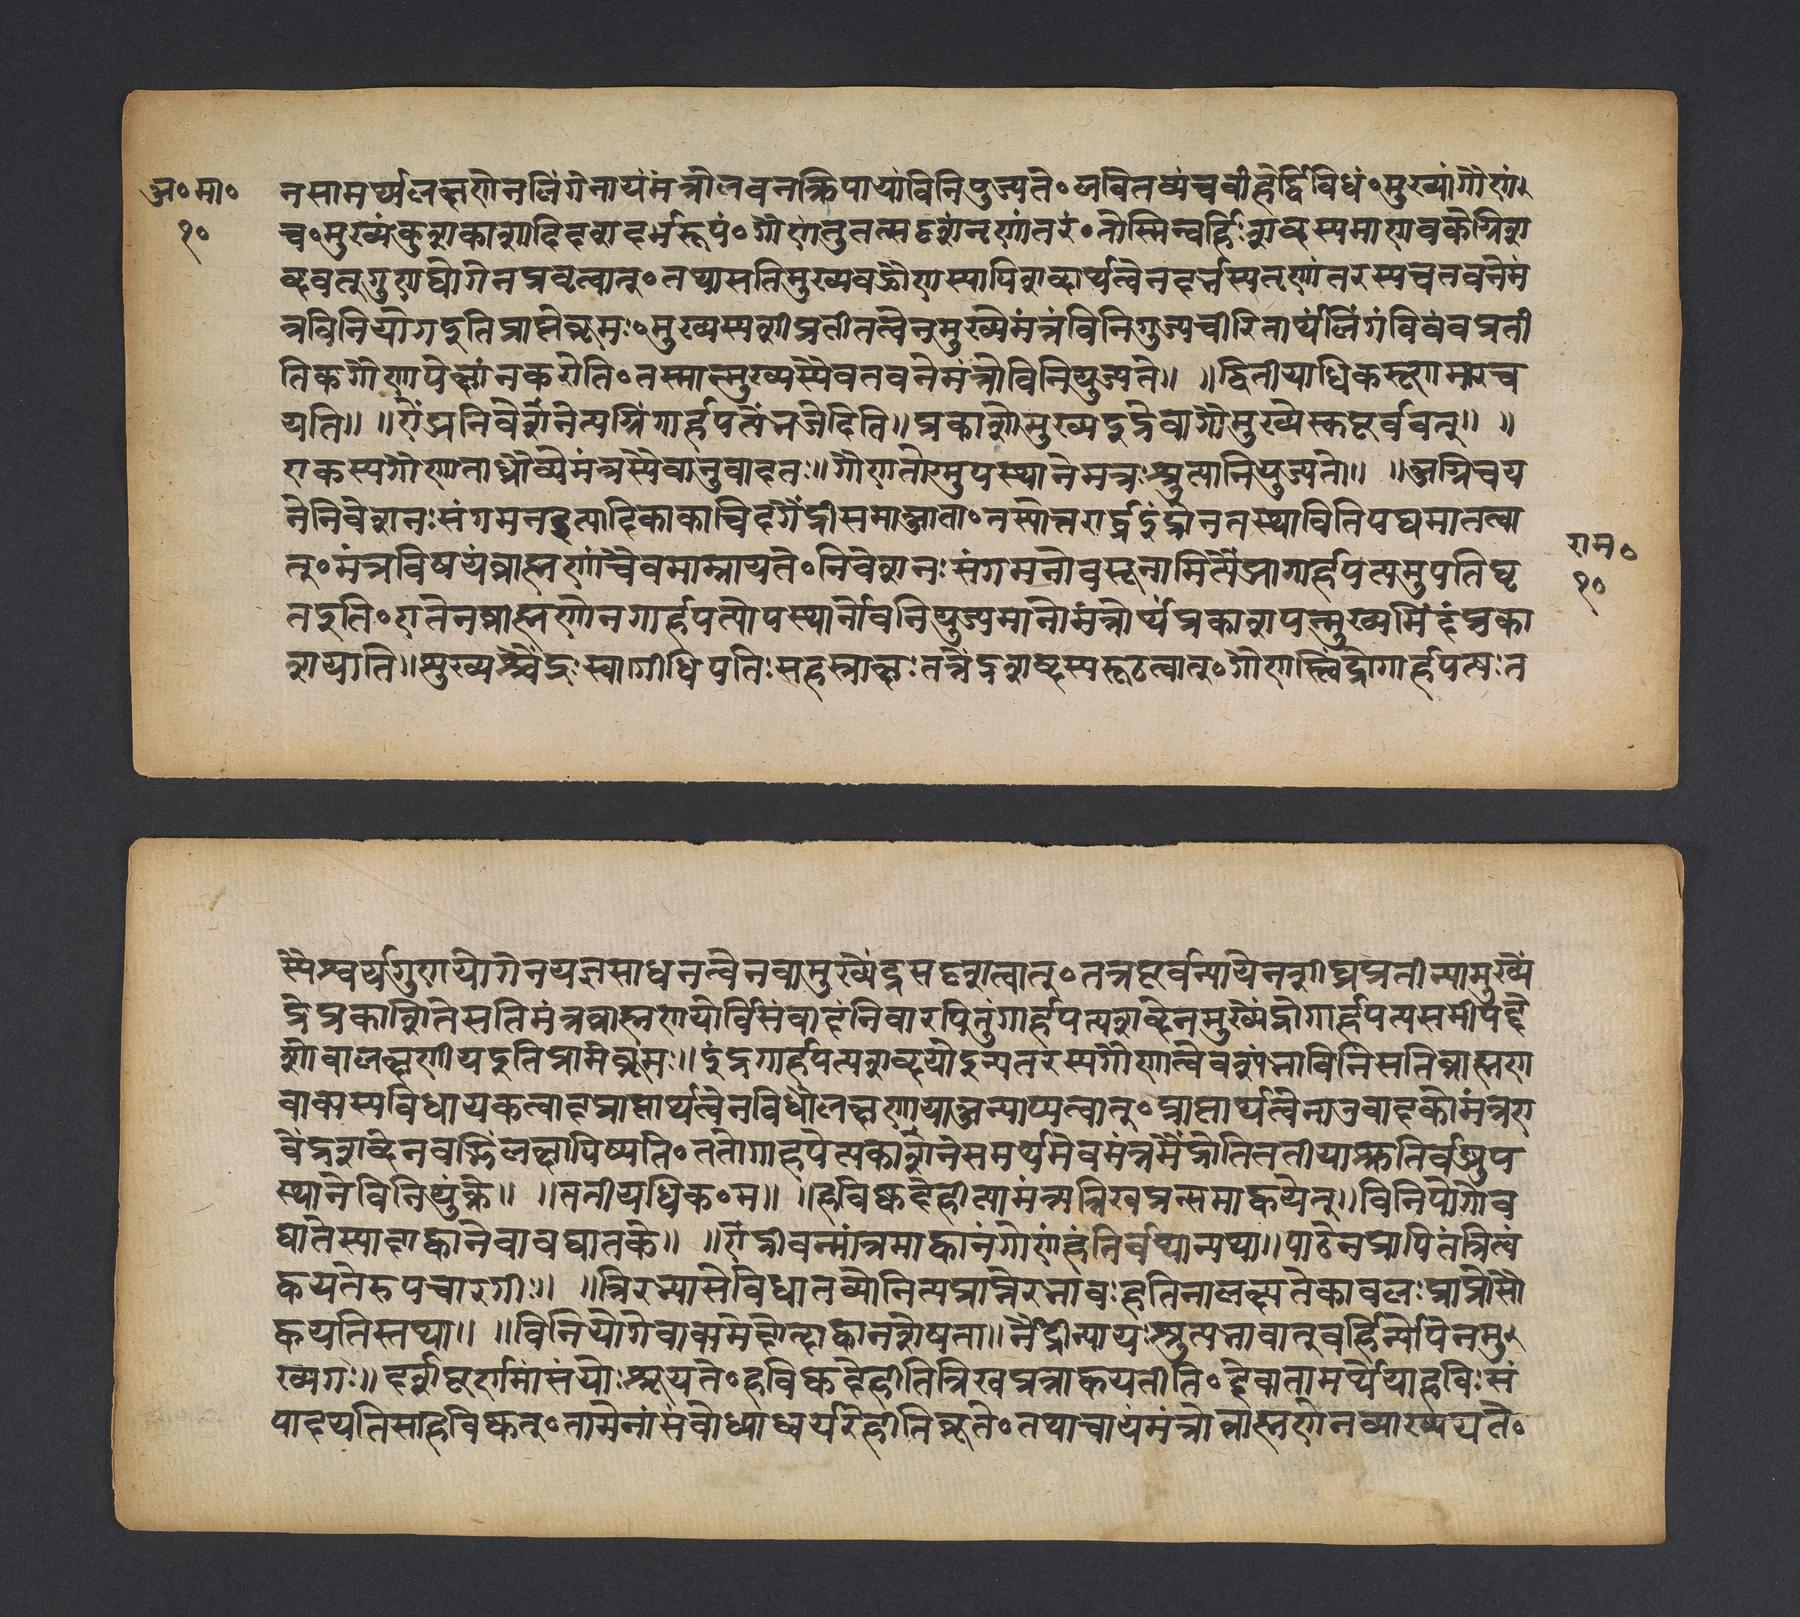 अ॰मा॰
१०
न सामर्थ्यलक्षणेन लिंगेनायं मंत्रो लवनक्रियायां विनियुज्यते॰ लवितव्यं च बर्हिर्द्विविधं॰ मुख्यं गौणं
च॰ मुख्यं कुशकाशादिदशदर्भरूपं॰ गौणं तु तत्सदृशं तृणांतरं॰ तेस्मिन्बर्हिःशब्दस्य माणवकेग्निश
ब्दवत् गुणयोगेन प्रवृत्तत्वात्॰ तथा सति मुख्यवद्गौणस्यापि शब्दार्थत्वेन दर्भस्य तृणांतरस्य च लवने मं
त्रविनियोग इति प्राप्ते ब्रूमः॰ मुख्यस्य शीघ्रप्रतीतत्वेन मुख्ये मंत्रं विनियुज्य चरितार्थं लिंगं विलंबप्रती
तिकगौणापेक्षां न करोति॰ तस्मान्मुख्यस्यैव लवने मंत्रो विनियुज्यते॥ ॥द्वितीयाधिकरणमारच
यति॥ ॥ऐंद्र्या निवेशनेत्यग्निं गार्हपत्यं भजेदिति॥ प्रकाशो मुख्य इंद्रे वा गौणमुख्येस्तु पूर्ववत्॥ ॥
एकस्य गौणता ध्रौव्ये मंत्रस्यैवानुवादतः॥ गौणतोग्न्युपस्थाने मंत्रः श्रुत्या नियुज्यते॥ ॥अग्निचय
ने निवेशनः संगमन इत्यादिका काचिदृगैंद्री समाम्नाता॰ तस्योत्तरार्द्ध इंद्रो न तस्थाविति पठ्यमानत्वा
त्॰ मंत्रविषयं ब्राह्मणं चैवमाम्नायते॰ निवेशनः संगमनो वसूनामित्यैंद्र्या गार्हपत्यमुपतिष्ठ
त इति॰ एतेन ब्राह्मणेन गार्हपत्योपस्थाने विनियुज्यमानो मंत्रोर्थप्रकाशयन्मुख्यमिंद्रं प्रका
शयति॥ मुख्यश्चेंद्रः स्वर्गाधिपतिः सहस्राक्षः तत्रेंद्रशब्दस्य रूढत्वात्॰ गौणस्त्विंद्रो गार्हपत्यः त
राम॰
१०
स्यैश्वर्यगुणयोगेन यज्ञसाधनत्वेन वा मुख्येंद्रसदृशत्वात्॰ तत्र पूर्वन्यायेन शीघ्रप्रतीत्या मुख्यें
द्रे प्रकाशिते सति मंत्रब्राह्मणयोर्विसंवादं निवारयितुं गार्हपत्यशब्देन मुख्येंद्रो गार्हपत्यसमीपदे
शो वा लक्षणीय इति प्राप्ते ब्रूमः॥ इंद्रगार्हपत्यशब्दयोरन्यतरस्य गौणत्वेवश्यंभाविनि सति ब्राह्मण
वाक्यस्य विधायकत्वादप्राप्तार्थत्वेन विधौ लक्षणाया अन्याय्यत्वात्॰ प्राप्तार्थत्वेनानुवादको मंत्र ए
वेंद्रशब्देन वह्निं लक्षयिष्यति॰ ततो गार्हपत्यप्रकाशने समर्थमेव मंत्रमैंद्र्येति तृतीयाश्रुतिर्वह्न्युप
स्थाने विनियुंक्ते॥ ॥तृतीयधिक॰म॥ ॥हविष्कृदेहीत्यामंत्र्य त्रिरवघ्नन्समाह्वयेत्॥ विनियोगोव
घाते स्यादाह्वाने वावघातके॥ ॥ऐंद्रीवन्मांत्रमाह्वानं गौणं हंतिर्वृथान्यथा॥ पाठेन प्रापितं त्रित्वं
ह्वयतेरुपचारगीः॥ ॥त्रिरभ्यासे विधातव्यो नित्यप्राप्तेरभावतः हंतिना लक्ष्यते कावलः प्राप्तोसौ
ह्वयतिस्तथा॥ ॥विनियोगे वाक्यभेदोन्यदाह्वानशेषता॥ नैंद्रीन्यायः श्रुत्यभावात् बर्हिर्न्यायेन मु
ख्यगः॥ दर्शपूर्णमासयोः श्रूयते॰ हविष्कृदेहीति त्रिरवघ्नन्नाह्वयतीति॰ देवतामर्थे या हविः सं
पादयति सा हविष्कृत्॰ तामेनां संबोध्याध्वर्युरेहीति ब्रूते॰ तथा चायं मंत्रो ब्राह्मणेन व्याख्यायते॰